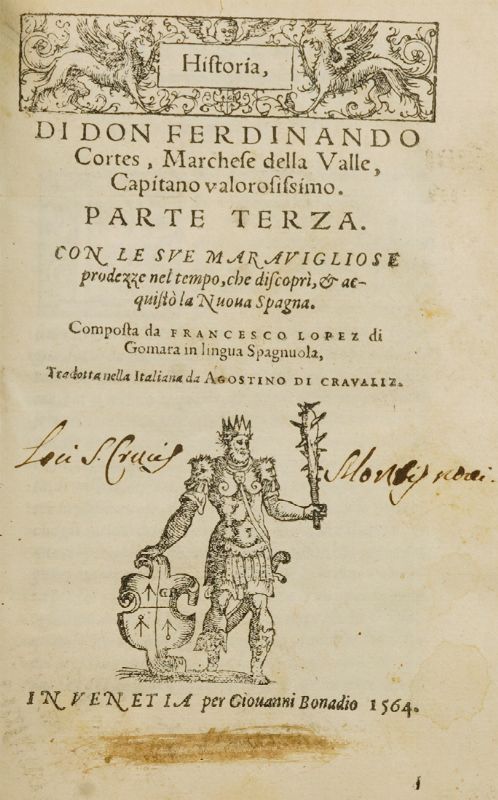 Hiſtoria,
DI DON FERDINANDO
Cortes, Marcheſe della Valle,
Capitano valoroſiſsimo.
PARTE TERZA.
CON LE SVE MARAVIGLIOSE
prodezze nel tempo, che diſcoprì, & ac-
quiſtò la Nuoua Spagna.
Compoſta da FRANCESCO LOPEZ di
Gomara in lingua Spagnuola,
Tradotta nella Italiana da AGOSTINO DI CRAVALIZ.
Loci S. Crucis
IN VENETIA per Giouanni Bonadio 1564.